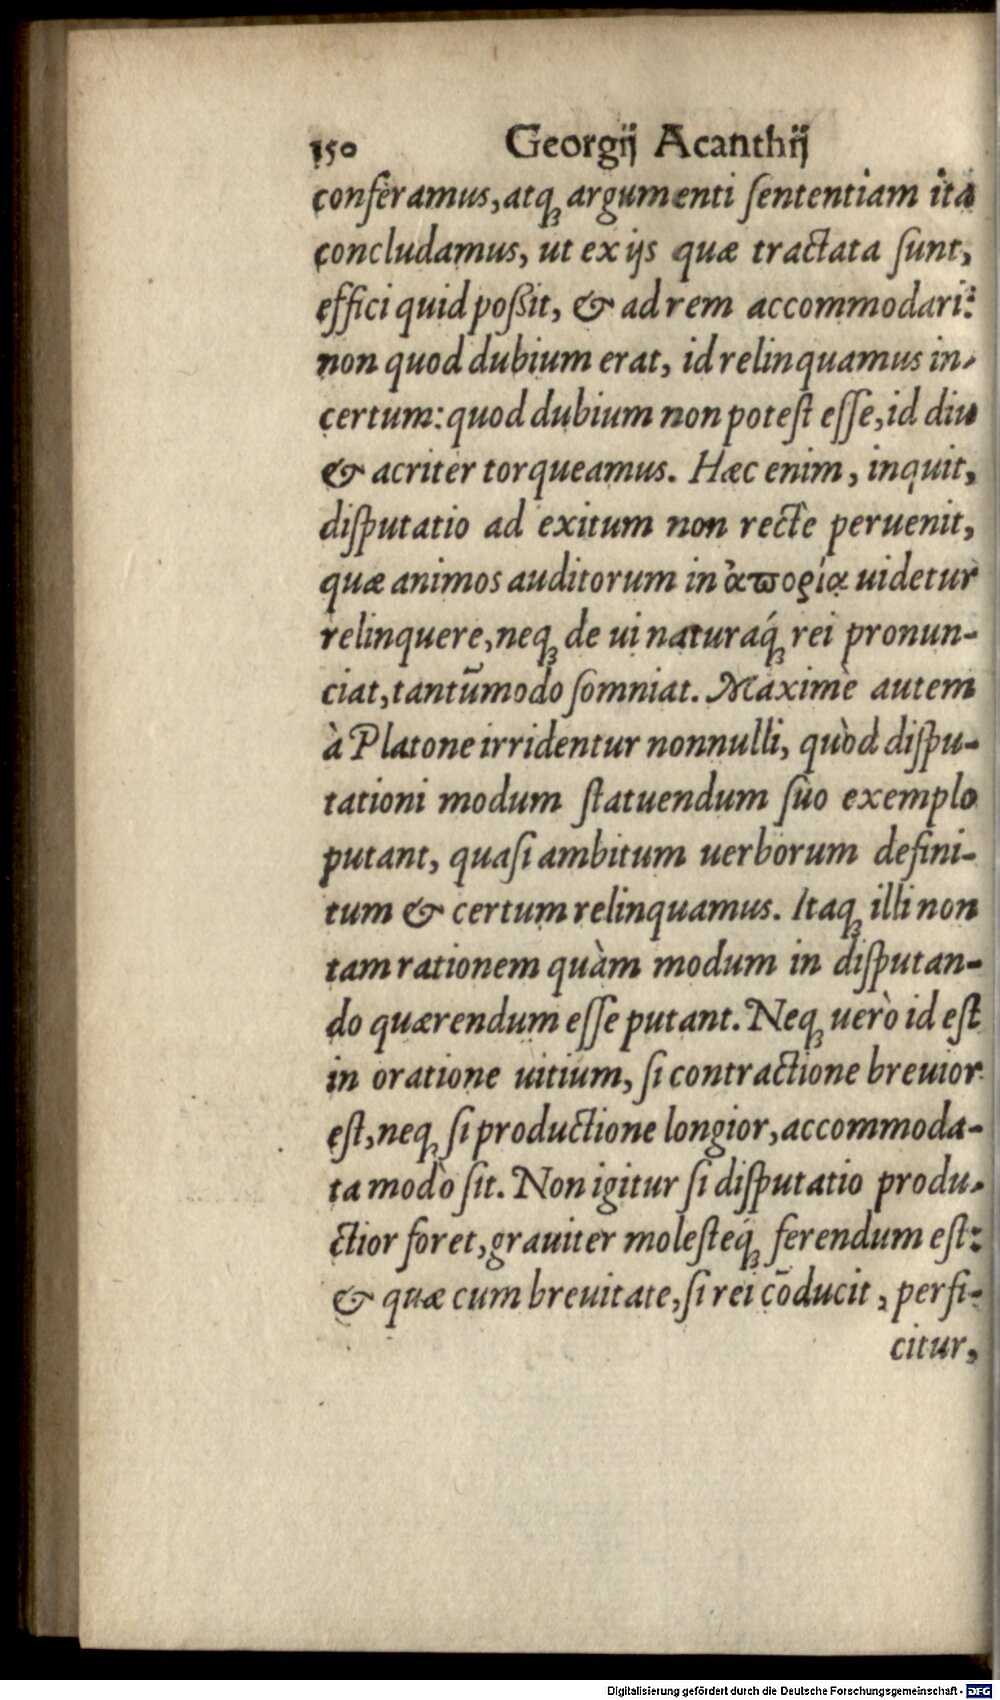 150 Georgij Acanthij
conferamus, atq; argumenti sententiam ita
concludamus, ut ex ijs quæ tractata sunt,
effici quid poßit, & ad rem accommodari:
non quod dubium erat, id relinquamus in-
certum: quod dubium non potest esse, id diu
& acriter torqueamus. Hæc enim, inquit,
disputatio ad exitum non rectè peruenit,
quæ animos auditorum in ἀπορίᾳ uidetur
relinquere, neq; de ui naturaq́; rei pronun-
ciat, tantūmodo somniat. Maximè autem
à Platone irridentur nonnulli, quòd dispu-
tationi modum statuendum suo exemplo
putant, quasi ambitum uerborum defini-
tum & certum relinquamus. Itaq; illi non
tam rationem quàm modum in disputan-
do quærendum esse putant. Neq; uerò id est
in oratione uitium, si contractione breuior
est, neq; si productione longior, accommoda-
ta modò sit. Non igitur si disputatio produ-
ctior foret, grauiter molesteq́; ferendum est:
& quæ cum breuitate, si rei cōducit, perfi-
citur,
Digitalisierung gefördert durch die Deutsche Forschungsgemeinschaft - DFG